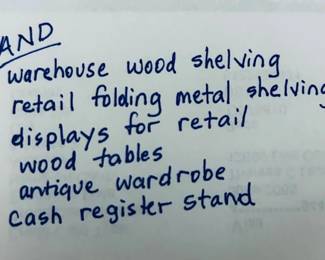 AND
warehouse wood shelving
retail folding metal shelving
displays for retail
wood tables
antique wardrobe
cash register stand